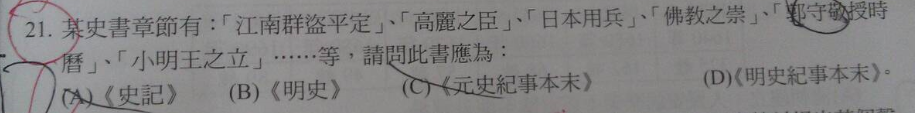 21. 某史書章節有：「江南群盜平定」、「高麗之臣」、「日本用兵」、「佛教之崇」、「郭守敬授時
曆」、「小明王之立」……等，請問此書應為：
(A)《史記》 (B)《明史》 (C)《元史紀事本末》 (D)《明史紀事本末》。